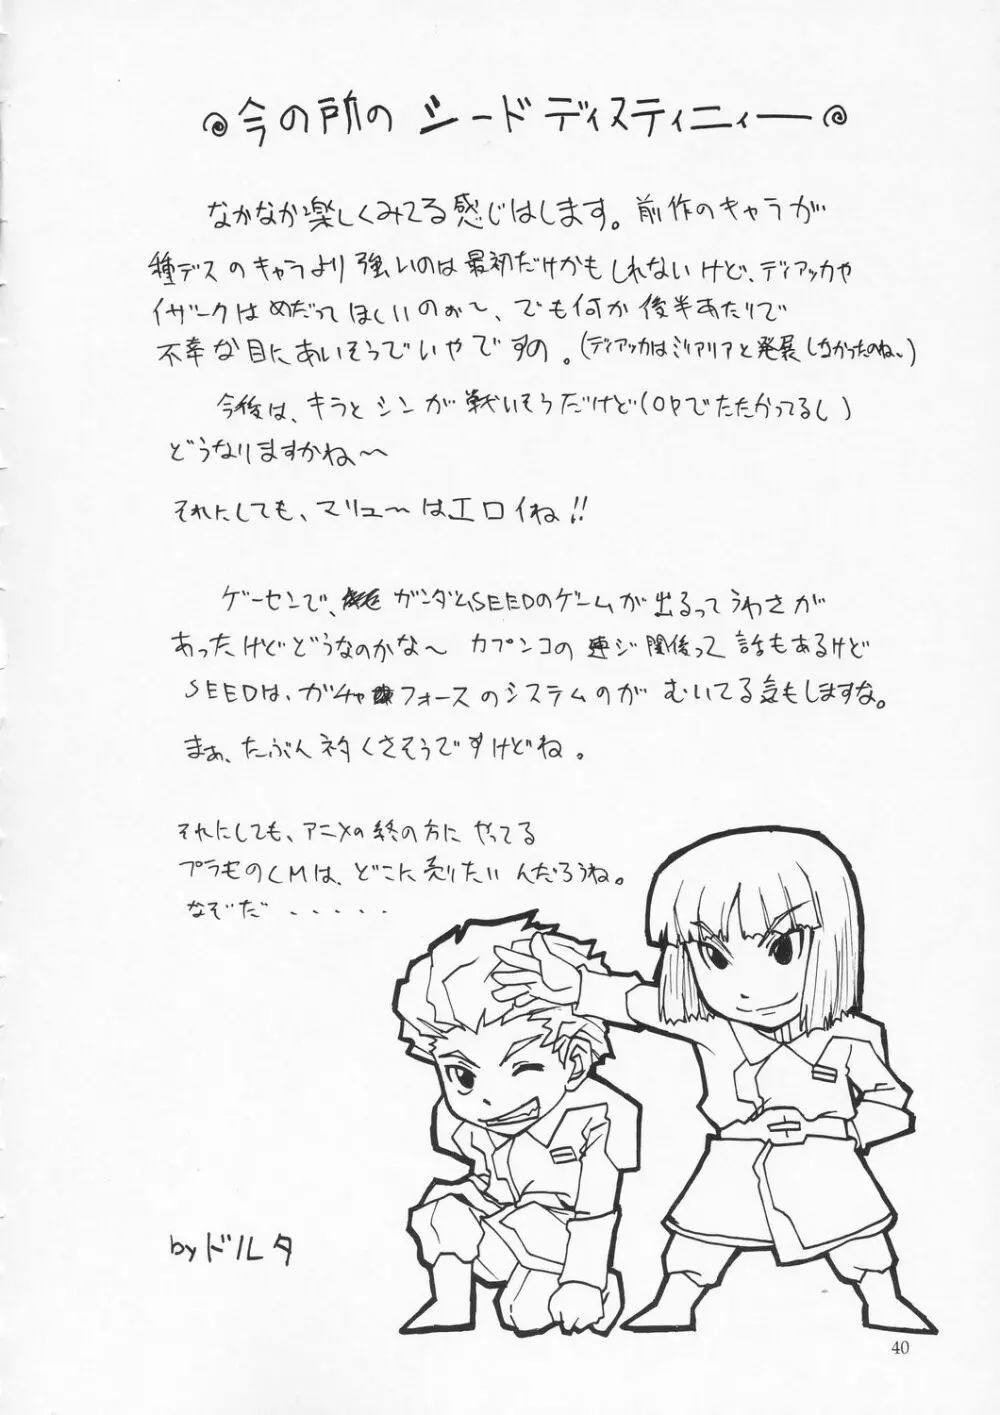 今の所の シードディスティニィー
なかなか楽しくみてる感じはします。前作のキャラが
種デスのキャラより強いのは最初だけかもしれないけど、ディアッカや
イザークはめだってほしいのぉ〜、でも何か後半あたりで
不幸な目にあいそうでいやですの。(ディアッカはミリアリアと発展しなかったのね〜)
今後は、キラとシンが戦いそうだけど(OPでたたかってるし)
どうなりますかね〜
それにしても、マリュ〜はエロイね!!
ゲーセンで、ガンダムSEEDのゲームが出るってうわさが
あったけどどうなのかな〜 カプンコの連ジ関係って話もあるけど
SEEDは、ガチャフォースのシステムのがむいてる気もしますな。
まぁ、たぶんネタくさそうですけどね。
それにしても、アニメの終の方にやってる
プラモのCMは、どこに売りたいんだろうね。
なぞだ・・・・・
by ドルタ
40